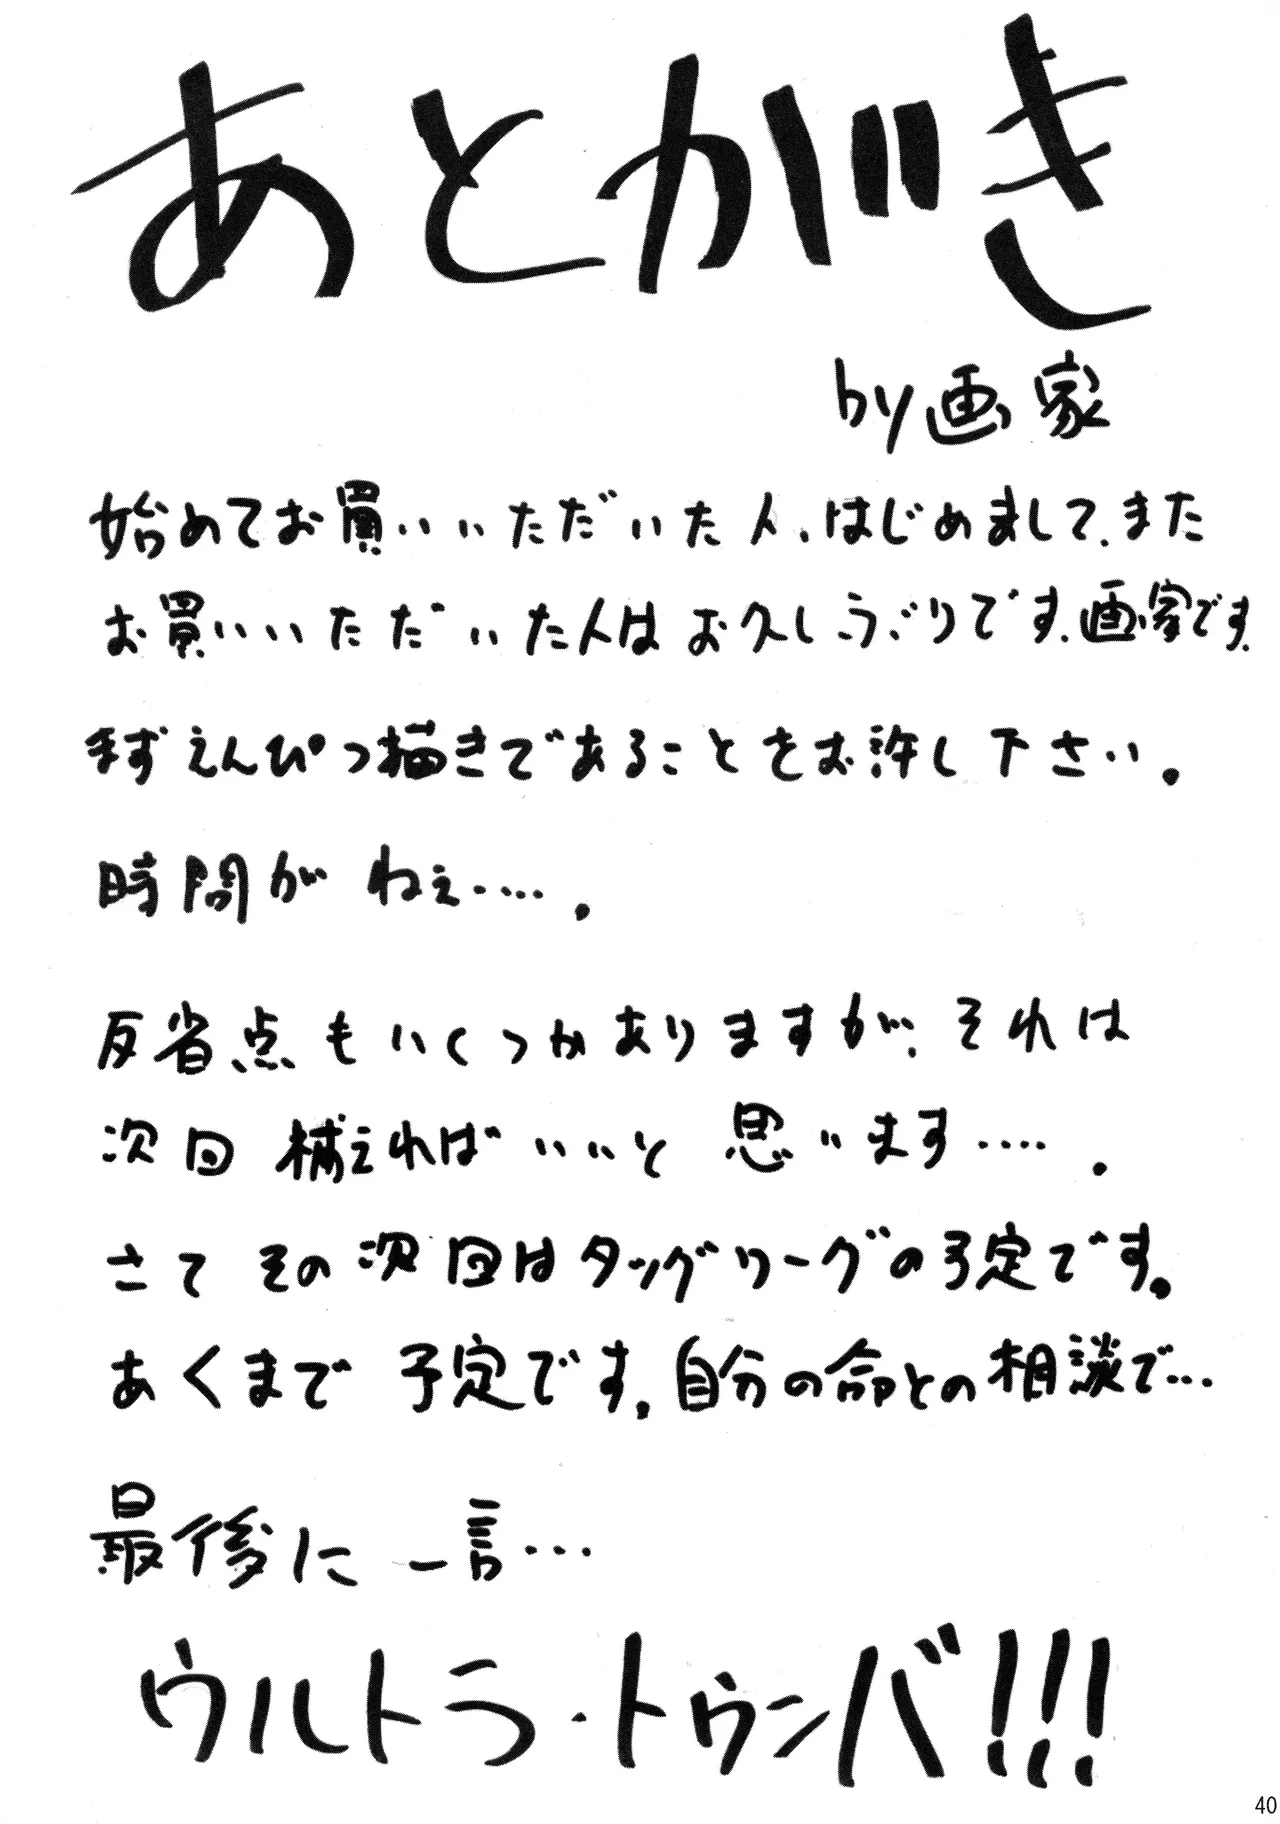 あとがき
by画家
始めてお買いいただいた人、はじめまして。また
お買いいただいた人はお久しうぶりです。画家です。
まずえんぴつ描きであることをお許し下さい。
時間がねぇ‥‥。
反省点もいくつかありますが、それは
次回補えればいいと思います‥‥。
さてその次回はタッグリーグの予定です。
あくまで予定です。自分の命との相談で…
最後に一言…
ウルトラ・トゥンバ!!!
40